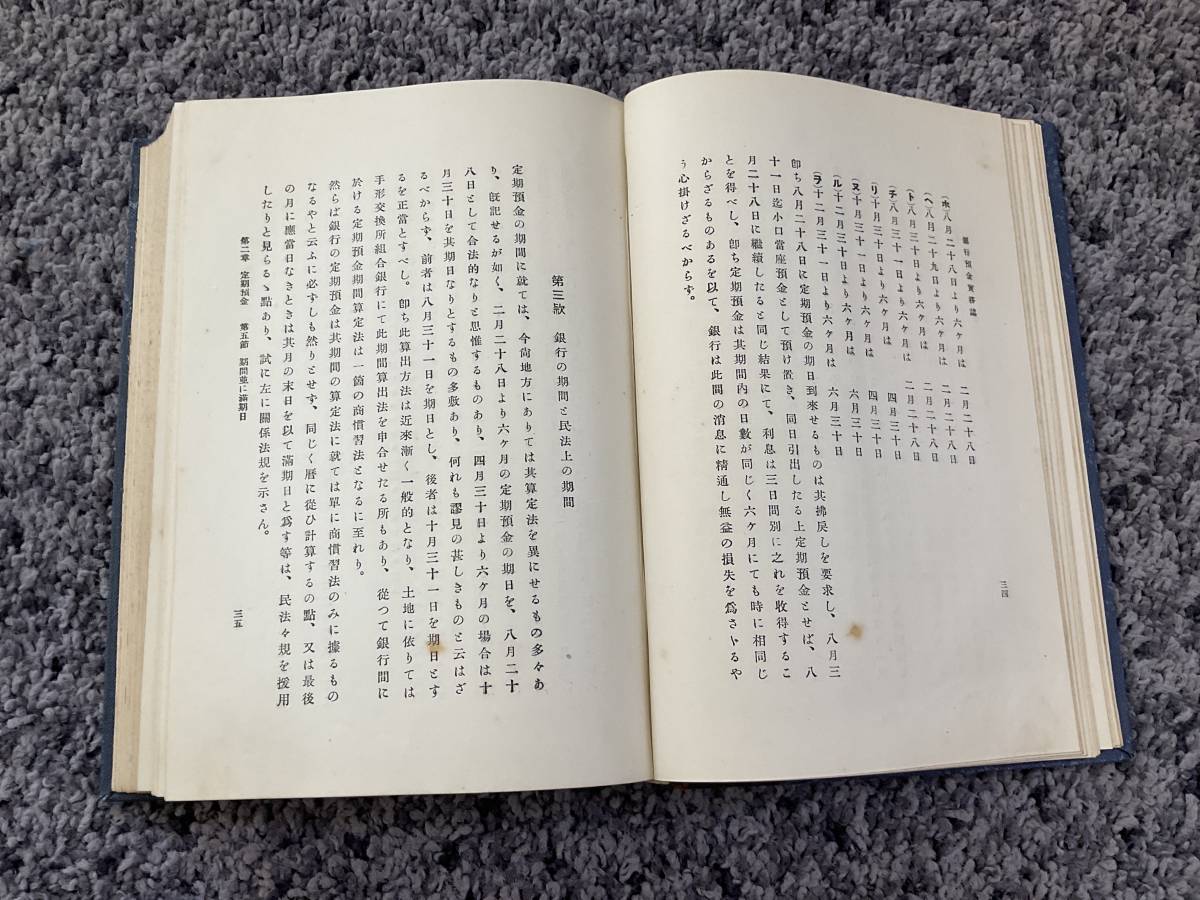 銀行預金實務誌
三四
(ホ)八月二十八日より六ケ月は 二月二十八日
(ヘ)八月二十九日より六ケ月は 二月二十八日
(ト)八月三十日より六ケ月は 二月二十八日
(チ)八月三十一日より六ケ月は 二月二十八日
(リ)十月三十日より六ケ月は 四月三十日
(ヌ)十月三十一日より六ケ月は 四月三十日
(ル)十二月三十日より六ケ月は 六月三十日
(ヲ)十二月三十一日より六ケ月は 六月三十日
卽ち八月二十八日に定期預金の期日到來せるものは其拂戾しを要求し、八月三
十一日迄小口當座預金として預け置き、同日引出したる上定期預金とせば、八
月二十八日に繼續したると同じ結果にて、利息は三日間別に之れを收得するこ
とを得べし、卽ち定期預金は其期間內の日數が同じく六ケ月にても時に相同じ
からざるものあるを以て、銀行は此間の消息に精通し無益の損失を爲さゝるや
う心掛けざるべからず。
第三欵 銀行の期間と民法上の期間
定期預金の期間に就ては、今尙地方にありては其算定法を異にせるもの多々あ
り、旣記せるが如く、二月二十八日より六ケ月の定期預金の期日を、八月二十
八日として合法的なりと思惟するものあり、四月三十日より六ケ月の場合は十
月三十日を其期日なりとするもの多數あり、何れも謬見の甚しきものと云はざ
るべからず、前者は八月三十一日を期日とし、後者は十月三十一日を期日とす
るを正當とすべし。卽ち此算出方法は近來漸く一般的となり、土地に依りては
手形交換所組合銀行にて此期間算出法を申合せたる所もあり、從つて銀行間に
於ける定期預金期間算定法は一箇の商慣習法となるに至れり。
然らば銀行の定期預金は其期間の算定法に就ては單に商慣習法のみに據るもの
なるやと云ふに必ずしも然りとせず、同じく曆に從ひ計算するの點、又は最後
の月に應當日なきときは其月の末日を以て滿期日と爲す等は、民法々規を援用
したりと見らるゝ點あり、試に左に關係法規を示さん。
第二章 定期預金 第五節 期間並に滿期日
三五